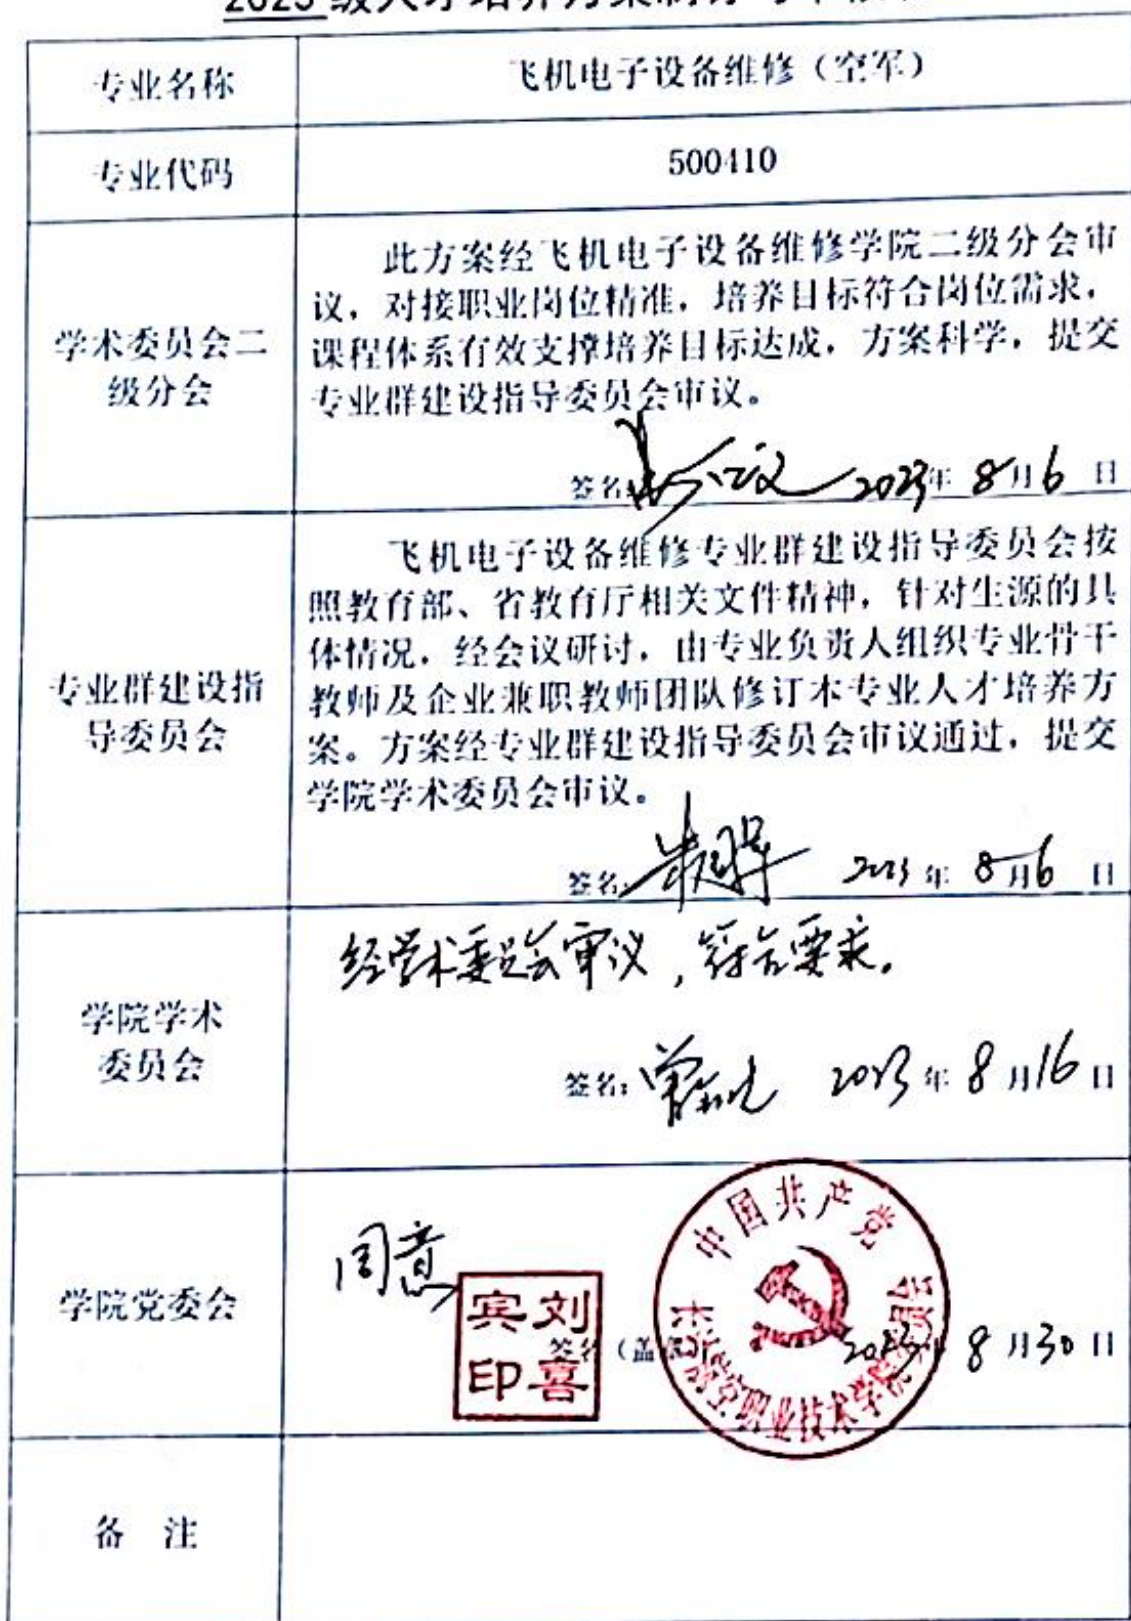 2023 级人才培养方案制
专业名称
飞机电子设备维修（空军）
专业代码
500410
学术委员会二
级分会
此方案经飞机电子设备维修学院二级分会审
议，对接职业岗位精准，培养目标符合岗位需求，
课程体系有效支撑培养目标达成，方案科学，提交
专业群建设指导委员会审议。
签名: 2023年 8月6 日
专业群建设指
导委员会
飞机电子设备维修专业群建设指导委员会按
照教育部、省教育厅相关文件精神，针对生源的具
体情况，经会议研讨，由专业负责人组织专业骨干
教师及企业兼职教师团队修订本专业人才培养方
案。方案经专业群建设指导委员会审议通过，提交
学院学术委员会审议。
签名: 2023 年 8月6 日
学院学术
委员会
经学术委员会审议，符合要求。
签名: 2023 年 8 月16 日
学院党委会
同意
刘喜宾印
签名（盖
中国共产党
长沙航空职业技术学院委员会
2023 8 月30 日
备 注